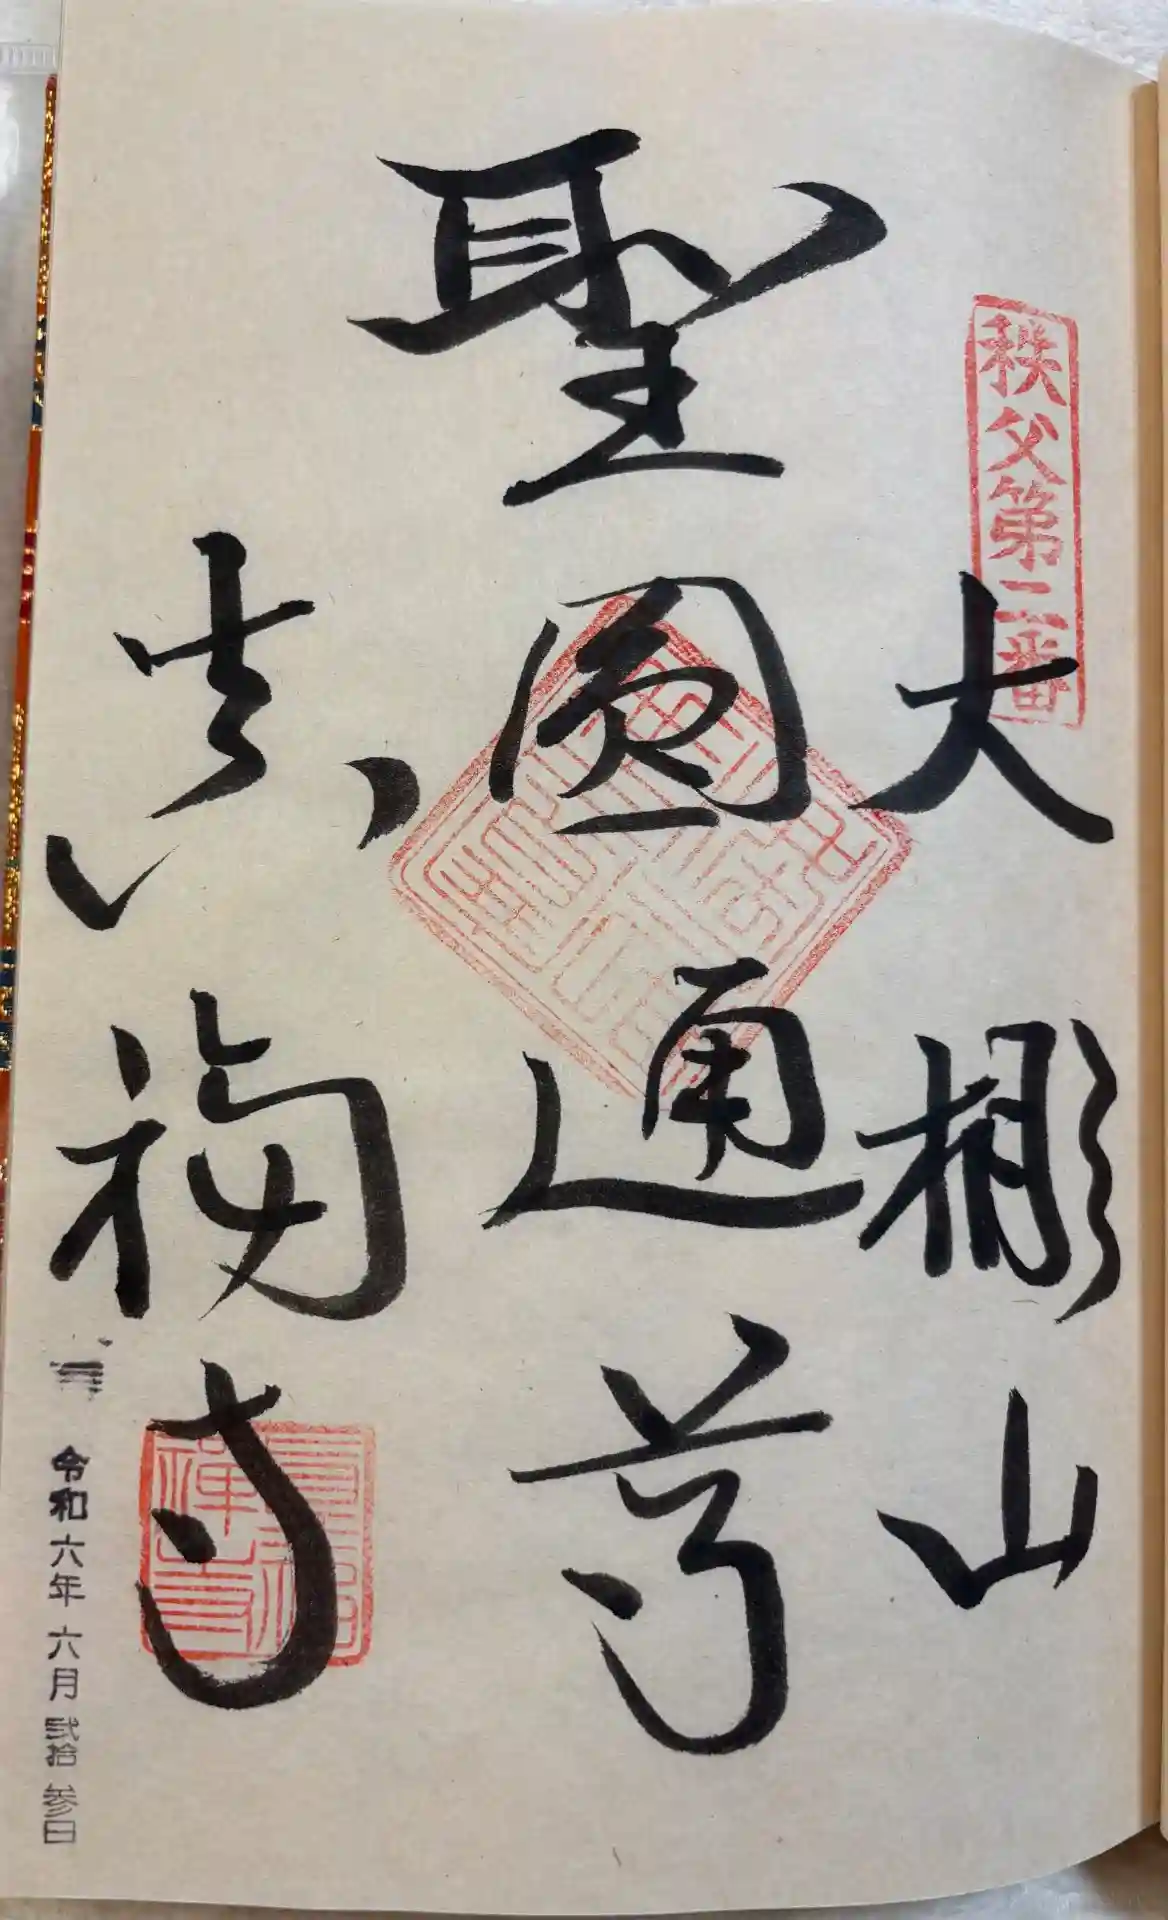 秩父第二番
大棚山
聖圓通尊
真福寺
令和六年六月弐拾参日